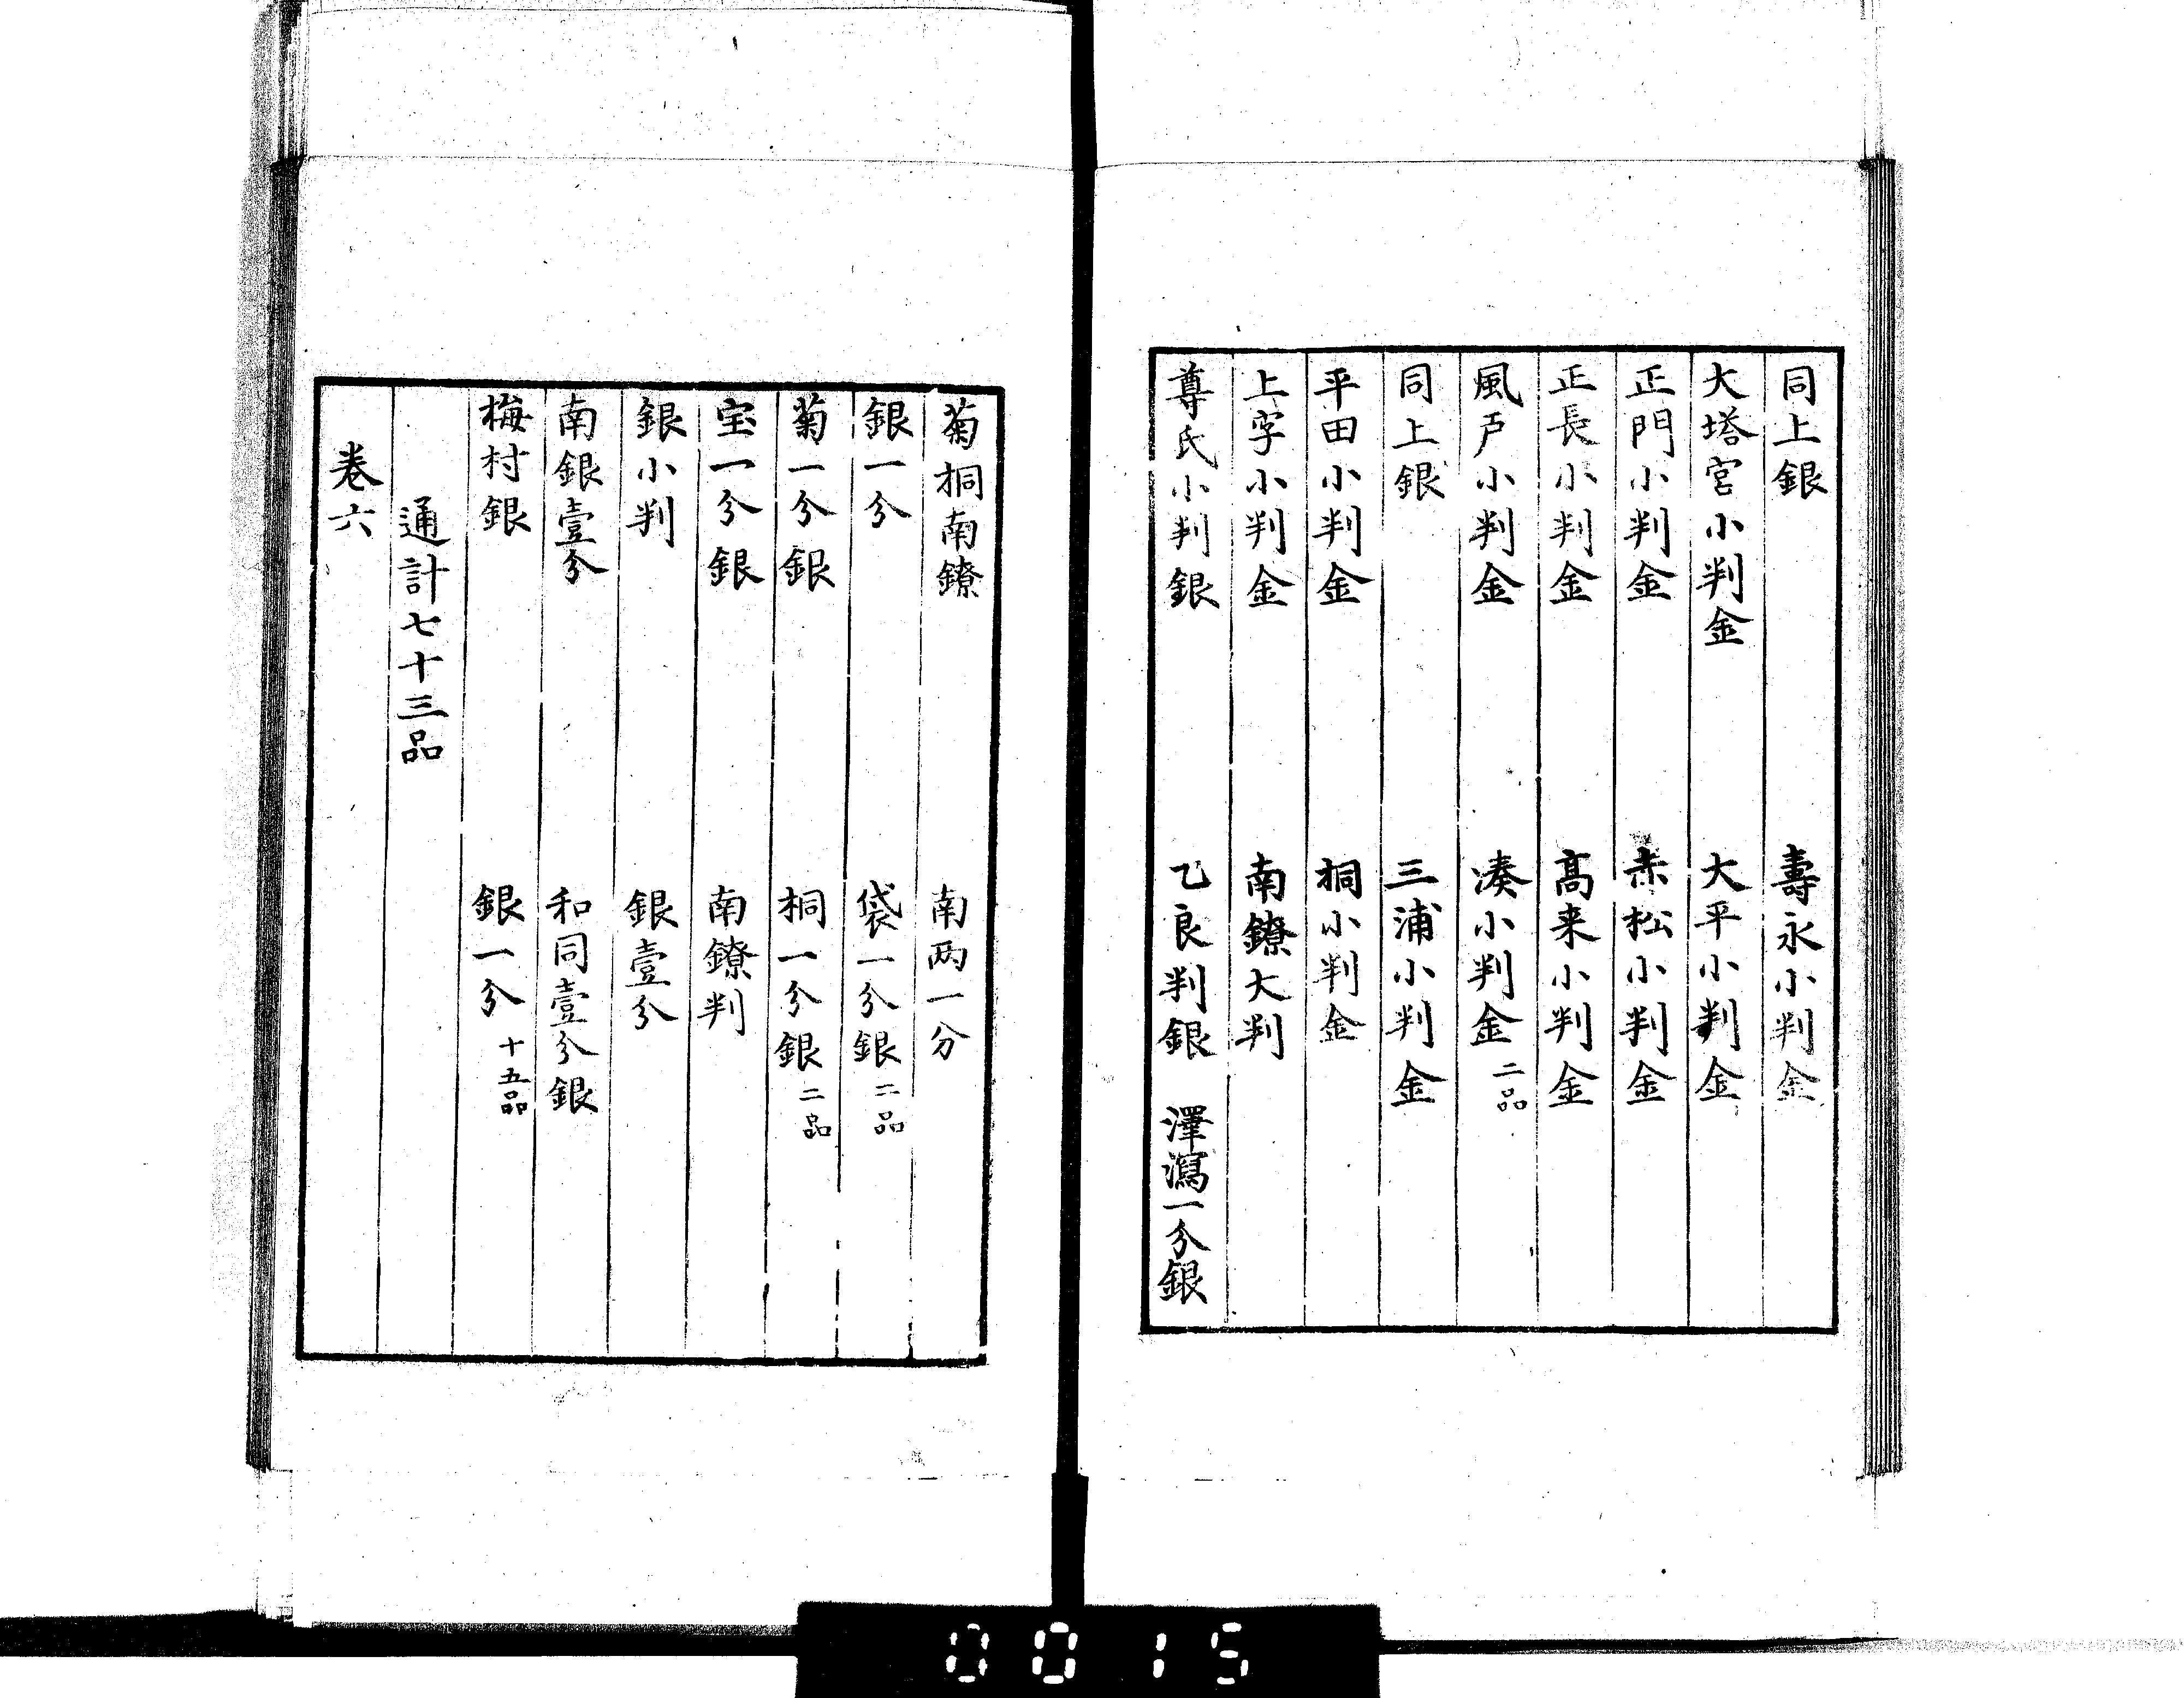 同上銀　壽永小判金
大塔宮小判金　大平小判金
正門小判金　赤松小判金
正長小判金　髙来小判金
風戸小判金　湊小判金 二品
同上銀　三浦小判金
平田小判金　桐小判金
上字小判金　南鐐大判
尊氏小判銀　乙良判銀　澤瀉一分銀
菊桐南鐐　南两一分
銀一分　袋一分銀 二品
菊一分銀　桐一分銀 二品
宝一分銀　南鐐判
銀小判　銀壹分
南銀壹分　和同壹分銀
梅村銀　銀一分 十五品
通計七十三品
巻六
0015